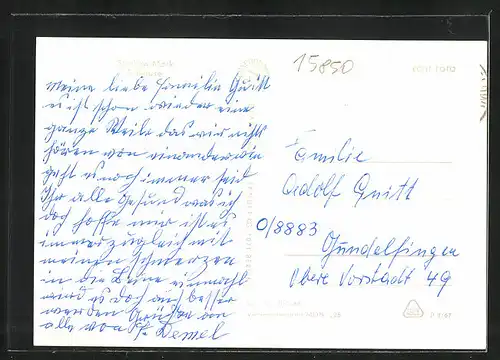 15850
Meine liebe Familie Gritt
nu ist schon wieder eine
ganze Weile das wir nichts
hören von einander wie
geht es noch immer seid
Ihr alle Gesund was ich
doch hoffe mir ist es
immer zugleich mit
meinen Schmerzen
in die Beine einmahl
wird es doch auch besser
werden Grüße an
alle von Fr Demel
Familie
Adolf Gritt
O/8883
Gundelfingen
Obere Vorstadt 49